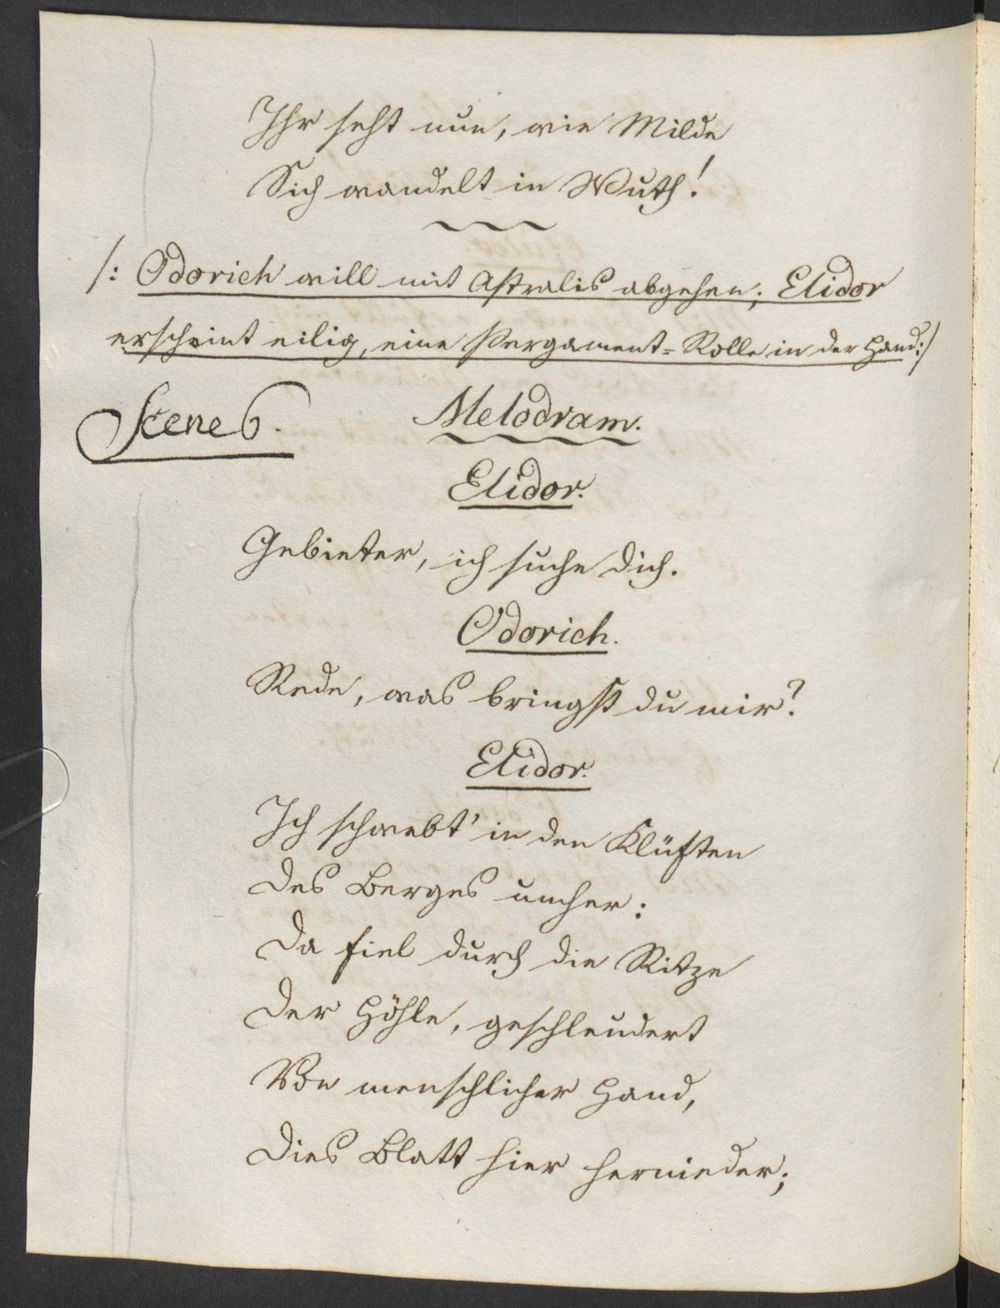 Ihr seht nun, wie Milde
Sich wandelt in Wuth!
/: Odorich will mit Astralis abgehen; Elidor
erscheint eilig, eine Pergament-Rolle in der Hand:/
Scene 6.
Melodram.
Elidor.
Gebieter, ich suche dich.
Odorich.
Rede, was bringst du mir?
Elidor.
Ich schwebt' in den Klüften
Des Berges umher:
Da fiel durch die Ritze
Der Höhle, geschleudert
Von menschlicher Hand,
Dies Blatt hier hernieder;